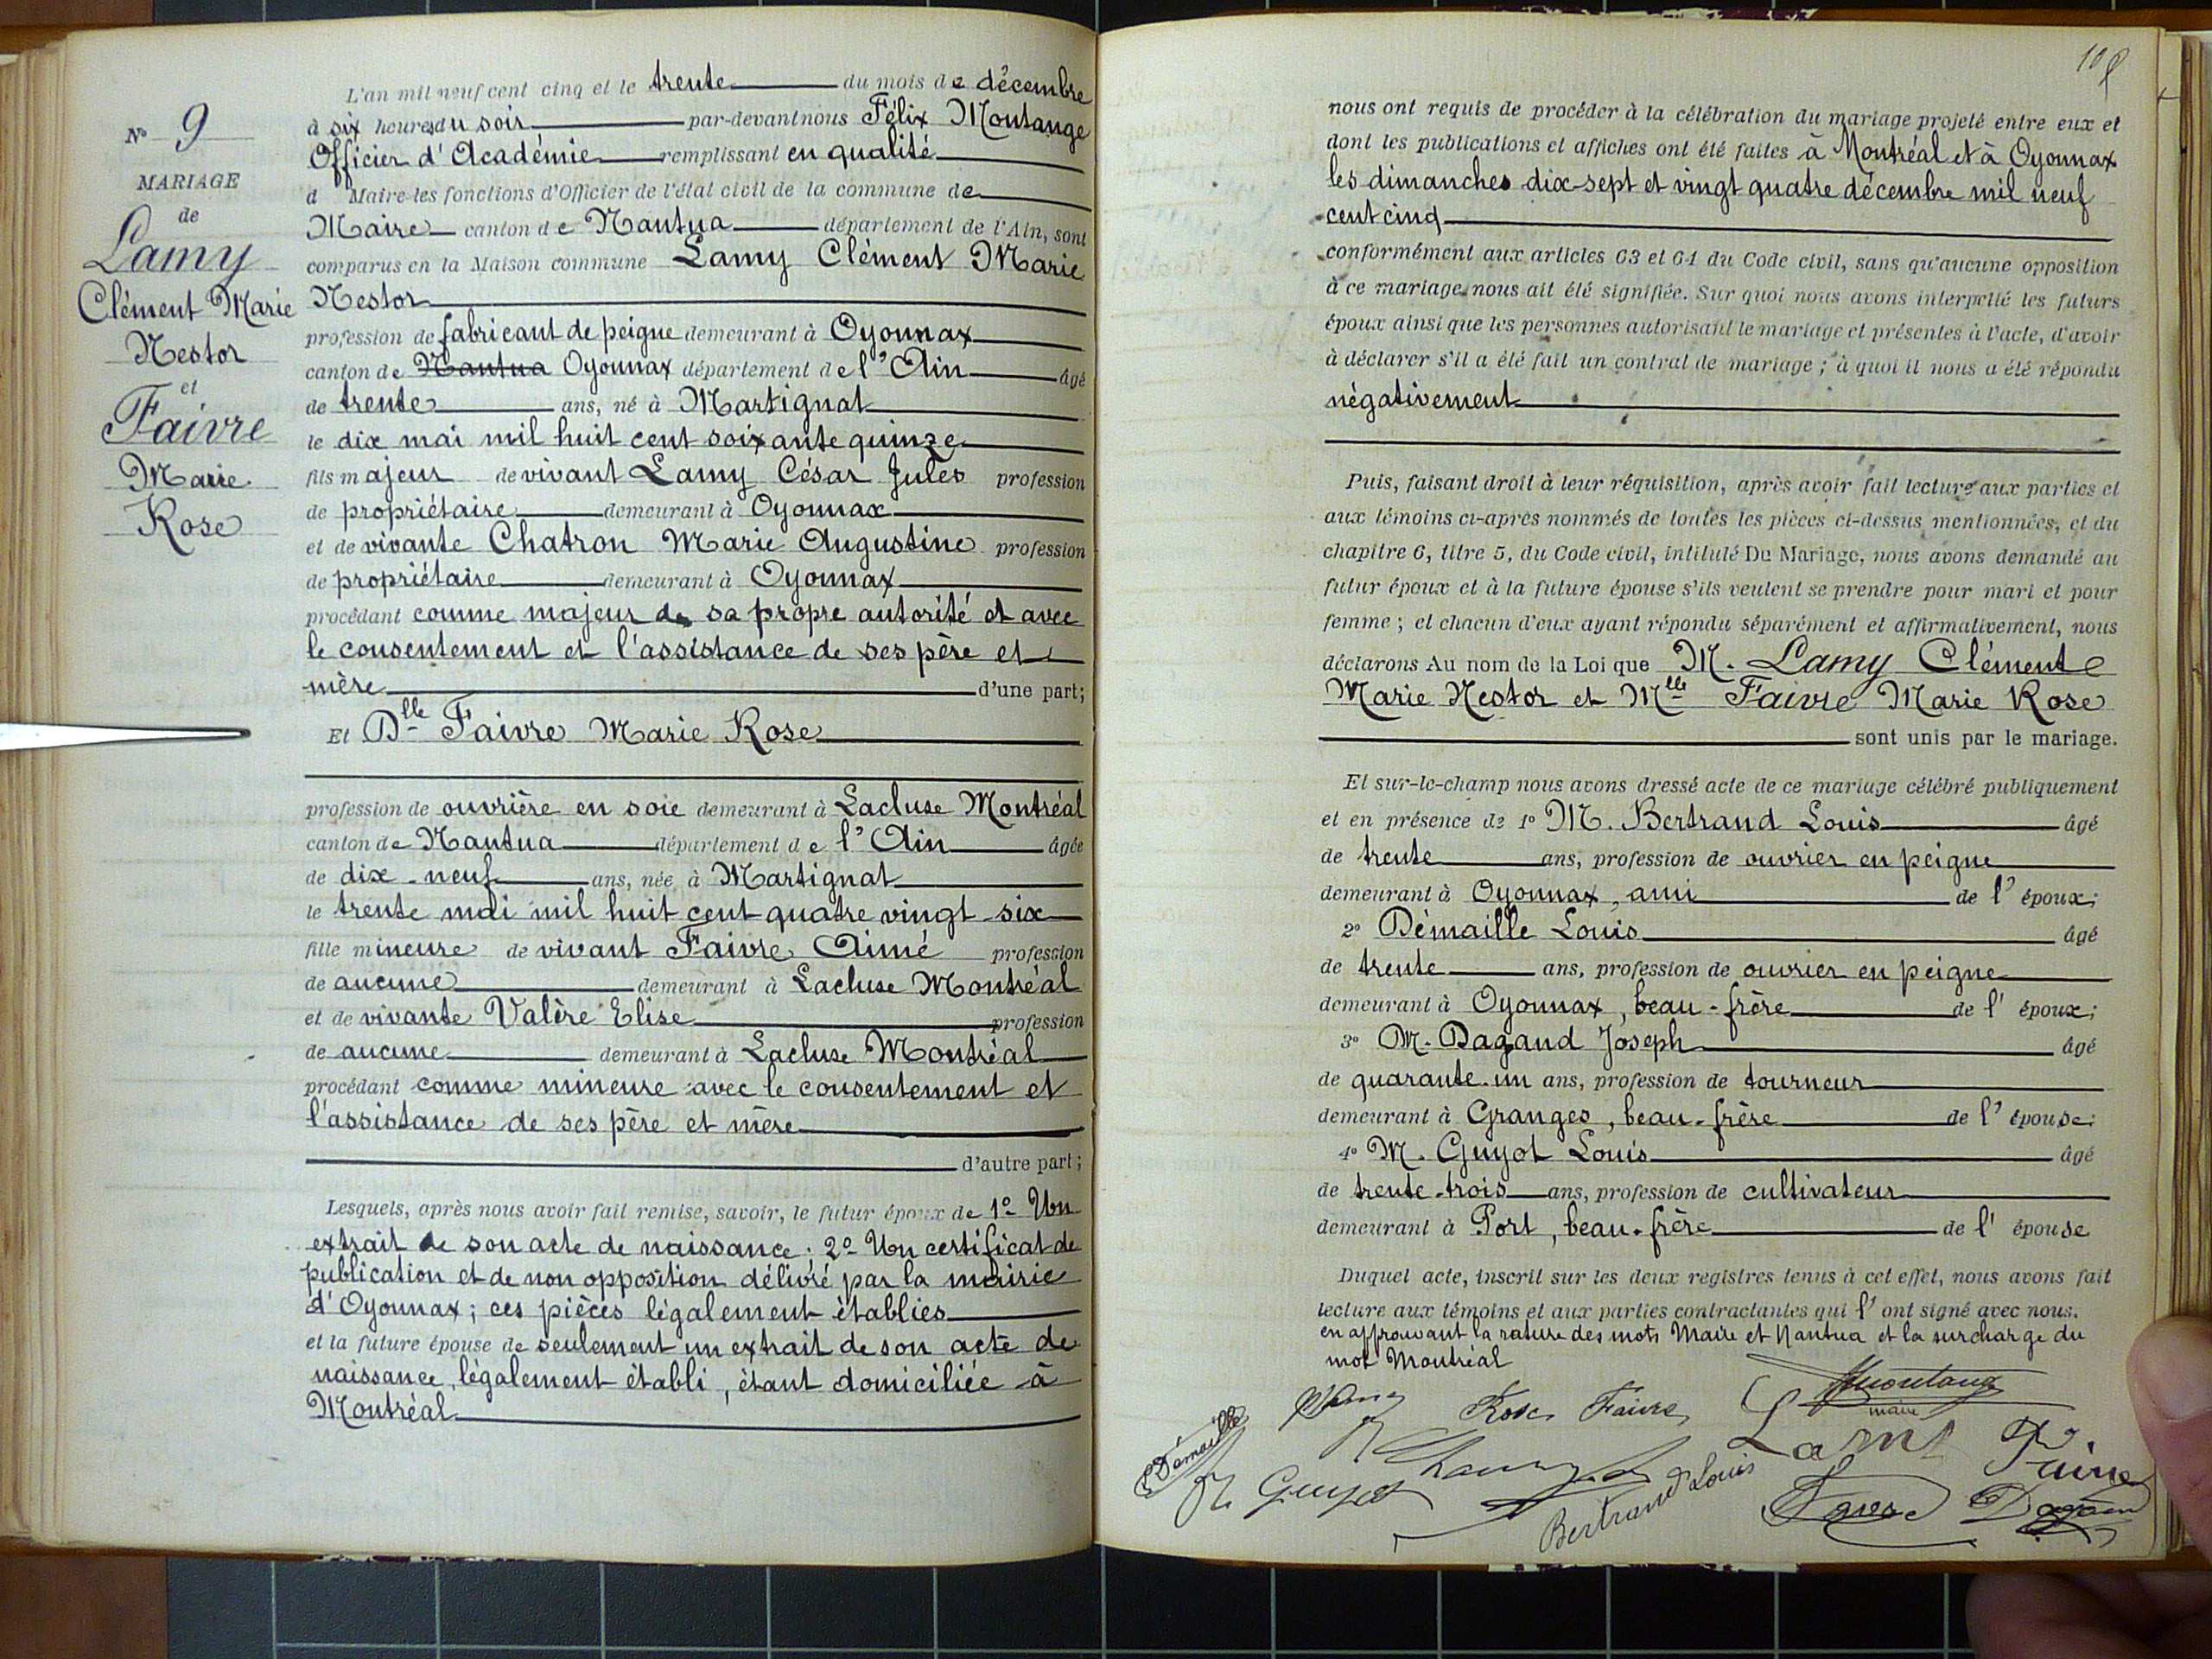 N° 9
MARIAGE
de
Lamy
Clément Marie
Nestor
et
Faivre
Marie
Rose
L'an mil neuf cent cinq et le trente du mois de décembre
à six heures du soir par-devant nous Félix Montange
Officier d'Académie remplissant en qualité
d Maire les fonctions d'Officier de l'état civil de la commune de
Maire canton de Nantua département de l'Ain, sont
comparus en la Maison commune Lamy Clément Marie
Nestor
profession de fabricant de peigne demeurant à Oyonnax
canton de Nantua Oyonnax département de l'Ain âgé
de trente ans, né à Martignat
le dix mai mil huit cent soixante quinze
fils majeur de vivant Lamy César Jules profession
de propriétaire demeurant à Oyonnax
et de vivante Chatron Marie Augustine profession
de propriétaire demeurant à Oyonnax
procédant comme majeur de sa propre autorité et avec
le consentement et l'assistance de ses père et
mère d'une part;
Et Dlle Faivre Marie Rose
profession de ouvrière en soie demeurant à Lacluse Montréal
canton de Nantua département de l'Ain âgée
de dix-neuf ans, née à Martignat
le trente mai mil huit cent quatre vingt-six
fille mineure de vivant Faivre Aimé profession
de aucune demeurant à Lacluse Montréal
et de vivante Valère Elise profession
de aucune demeurant à Lacluse Montréal
procédant comme mineure avec le consentement et
l'assistance de ses père et mère
d'autre part;
Lesquels, après nous avoir fait remise, savoir, le futur époux de 1° Un
extrait de son acte de naissance; 2° Un certificat de
publication et de non opposition délivré par la mairie
d'Oyonnax; ces pièces légalement établies
et la future épouse de seulement un extrait de son acte de
naissance, légalement établi, étant domiciliée à
Montréal
nous ont requis de procéder à la célébration du mariage projeté entre eux et
dont les publications et affiches ont été faites à Montréal et à Oyonnax
les dimanches dix-sept et vingt quatre décembre mil neuf
cent cinq
conformément aux articles 63 et 64 du Code civil, sans qu'aucune opposition
à ce mariage nous ait été signifiée. Sur quoi nous avons interpellé les futurs
époux ainsi que les personnes autorisant le mariage et présentes à l'acte, d'avoir
à déclarer s'il a été fait un contrat de mariage; à quoi il nous a été répondu
négativement
Puis, faisant droit à leur réquisition, après avoir fait lecture aux parties et
aux témoins ci-après nommés de toutes les pièces ci-dessus mentionnées, et du
chapitre 6, titre 5, du Code civil, intitulé Du Mariage, nous avons demandé au
futur époux et à la future épouse s'ils veulent se prendre pour mari et pour
femme; et chacun d'eux ayant répondu séparément et affirmativement, nous
déclarons Au nom de la Loi que M. Lamy Clément
Marie Nestor et Mlle Faivre Marie Rose
sont unis par le mariage.
Et sur-le-champ nous avons dressé acte de ce mariage célébré publiquement
et en présence de 1° M. Bertrand Louis âgé
de trente ans, profession de ouvrier en peigne
demeurant à Oyonnax, ami de l'époux;
2° Démaille Louis âgé
de trente ans, profession de ouvrier en peigne
demeurant à Oyonnax, beau-frère de l'époux;
3° M. Dagand Joseph âgé
de quarante-un ans, profession de tourneur
demeurant à Granges, beau-frère de l'épouse;
4° M. Guyot Louis âgé
de trente-trois ans, profession de cultivateur
demeurant à Port, beau-frère de l'épouse
Duquel acte, inscrit sur les deux registres tenus à cet effet, nous avons fait
lecture aux témoins et aux parties contractantes qui l'ont signé avec nous.
en approuvant la rature des mots Maire et Nantua et la surcharge du
mot Montréal
Montange
maire
Rose Faivre
Démaille
Lamy
Guyot
Bertrand Louis
Dagand